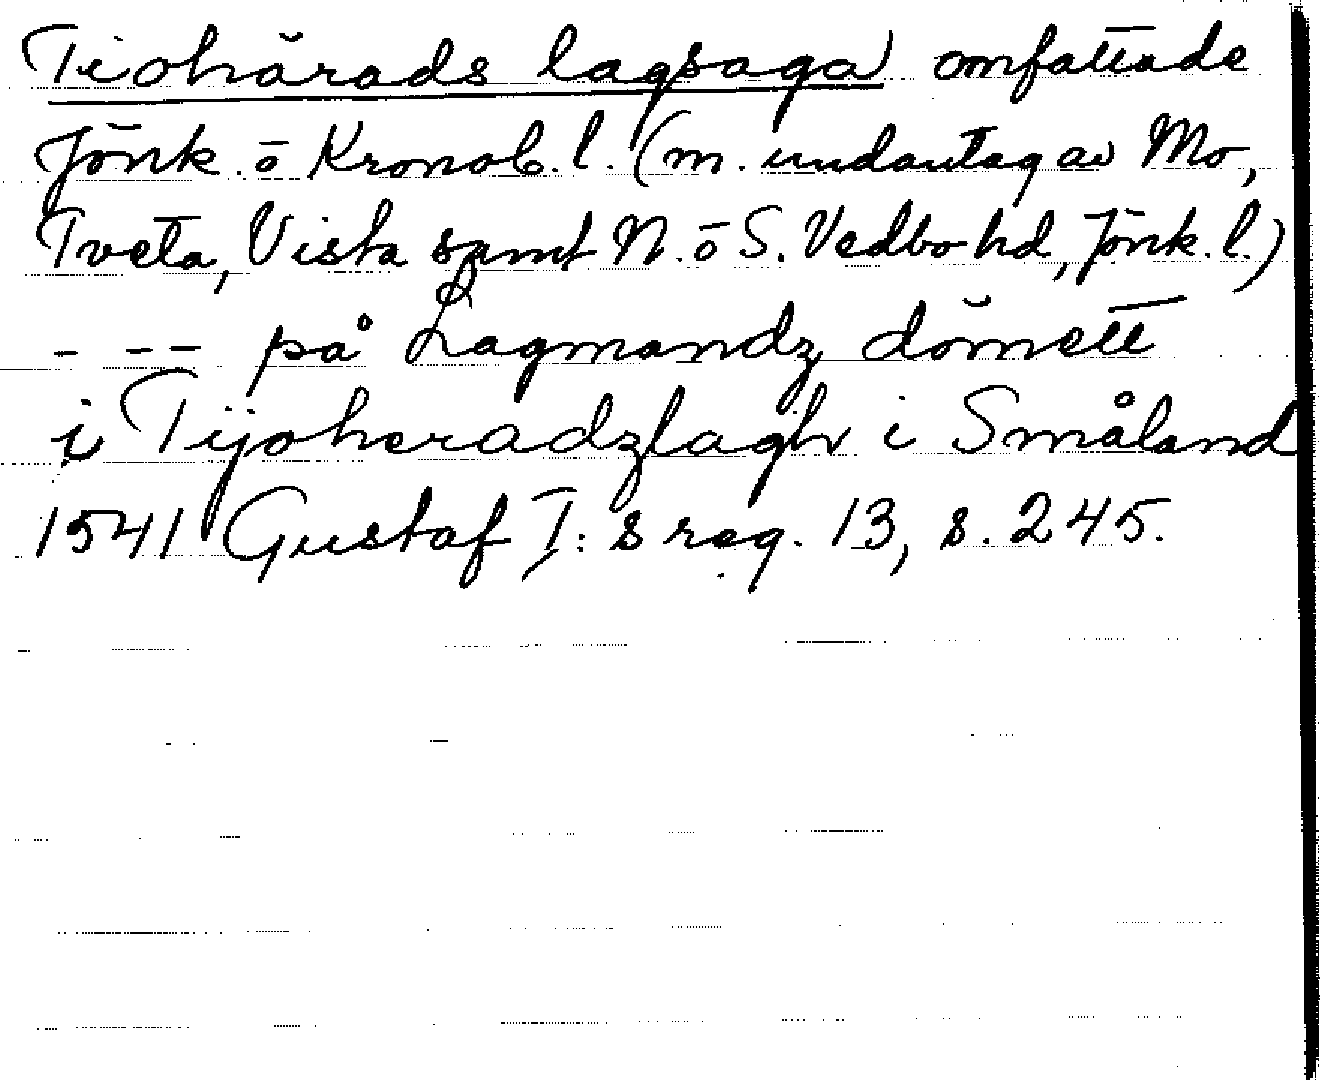 Tiohärads lagsaga) omfattade
Jönk. o Kronob. l. (m. undantag av Mo,
Tveta, Vista samt N. o S. Vedbo hd, Jönk. l.)
- - - på Lagmandz dömett
i Tijoheradzlagh i Småland
1541 Gustaf I:s reg. 13, s. 245.